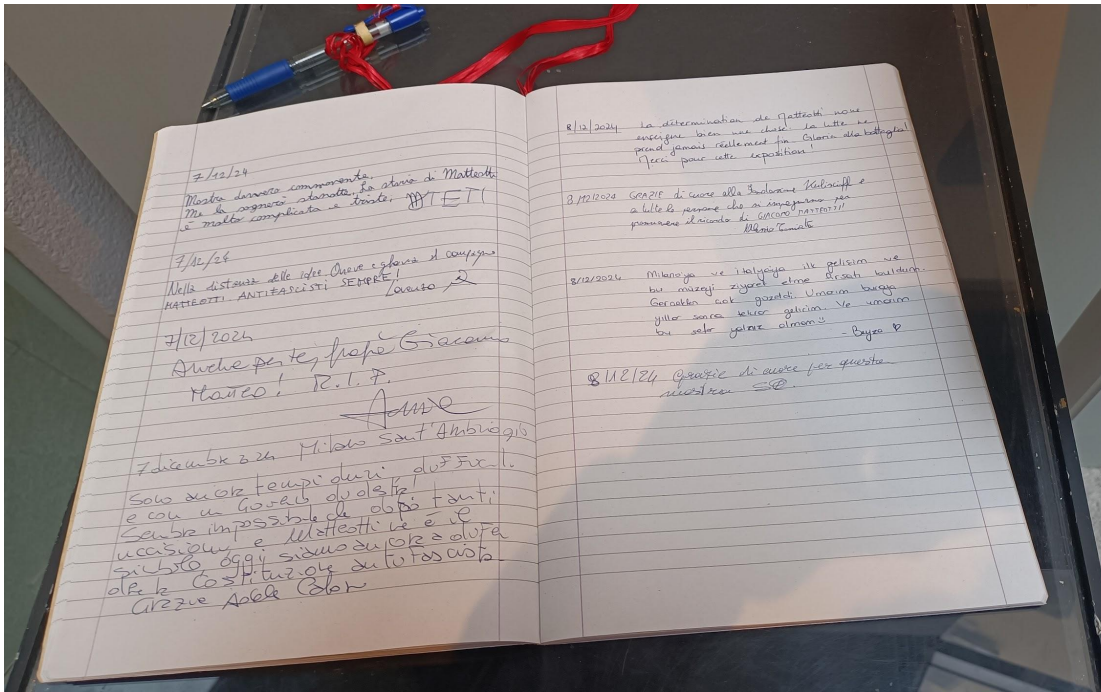 7/12/24
Mostra davvero commovente.
Me la sognerò stanotte. La storia di Matteotti
è molto complicata e triste.
7/12/24
Nella distanza delle idee. Onore e gloria al compagno
MATTEOTTI. ANTIFASCISTI SEMPRE!
Lorenzo
7/12/2024
Anche per te, Giacomo
Matteo! R.I.P.
7 dicembre 2024 Milano Sant'Ambrogio
Sono ancora tempi duri, difficili
e con un Governo di destra!
Sembra impossibile che dopo tanti
uccisioni, e Matteotti ne è il
simbolo oggi siamo ancora a
la Costituzione antifascista
Grazie Adele
8/12/2024 La détermination de Matteotti nous
enseigne bien une chose: la lutte ne
prend jamais réellement fin. Gloria alla battaglia!
Merci pour cette exposition!
8/12/2024 GRAZIE di cuore alla Fondazione Kuliscioff e
a tutte le persone che si impegnano per
promuovere il ricordo di GIACOMO MATTEOTTI!
8/12/2024 Milano'ya ve italyaya ilk gelişim ve
bu müzeyi ziyaret etme fırsatı buldum.
Gerçekten çok güzeldi. Umarım buraya
yıllar sonra tekrar gelirim. Ve umarım
bu sefer yalnız olmam
- Beyza ♡
8/12/24 Grazie di cuore per questa
mostra